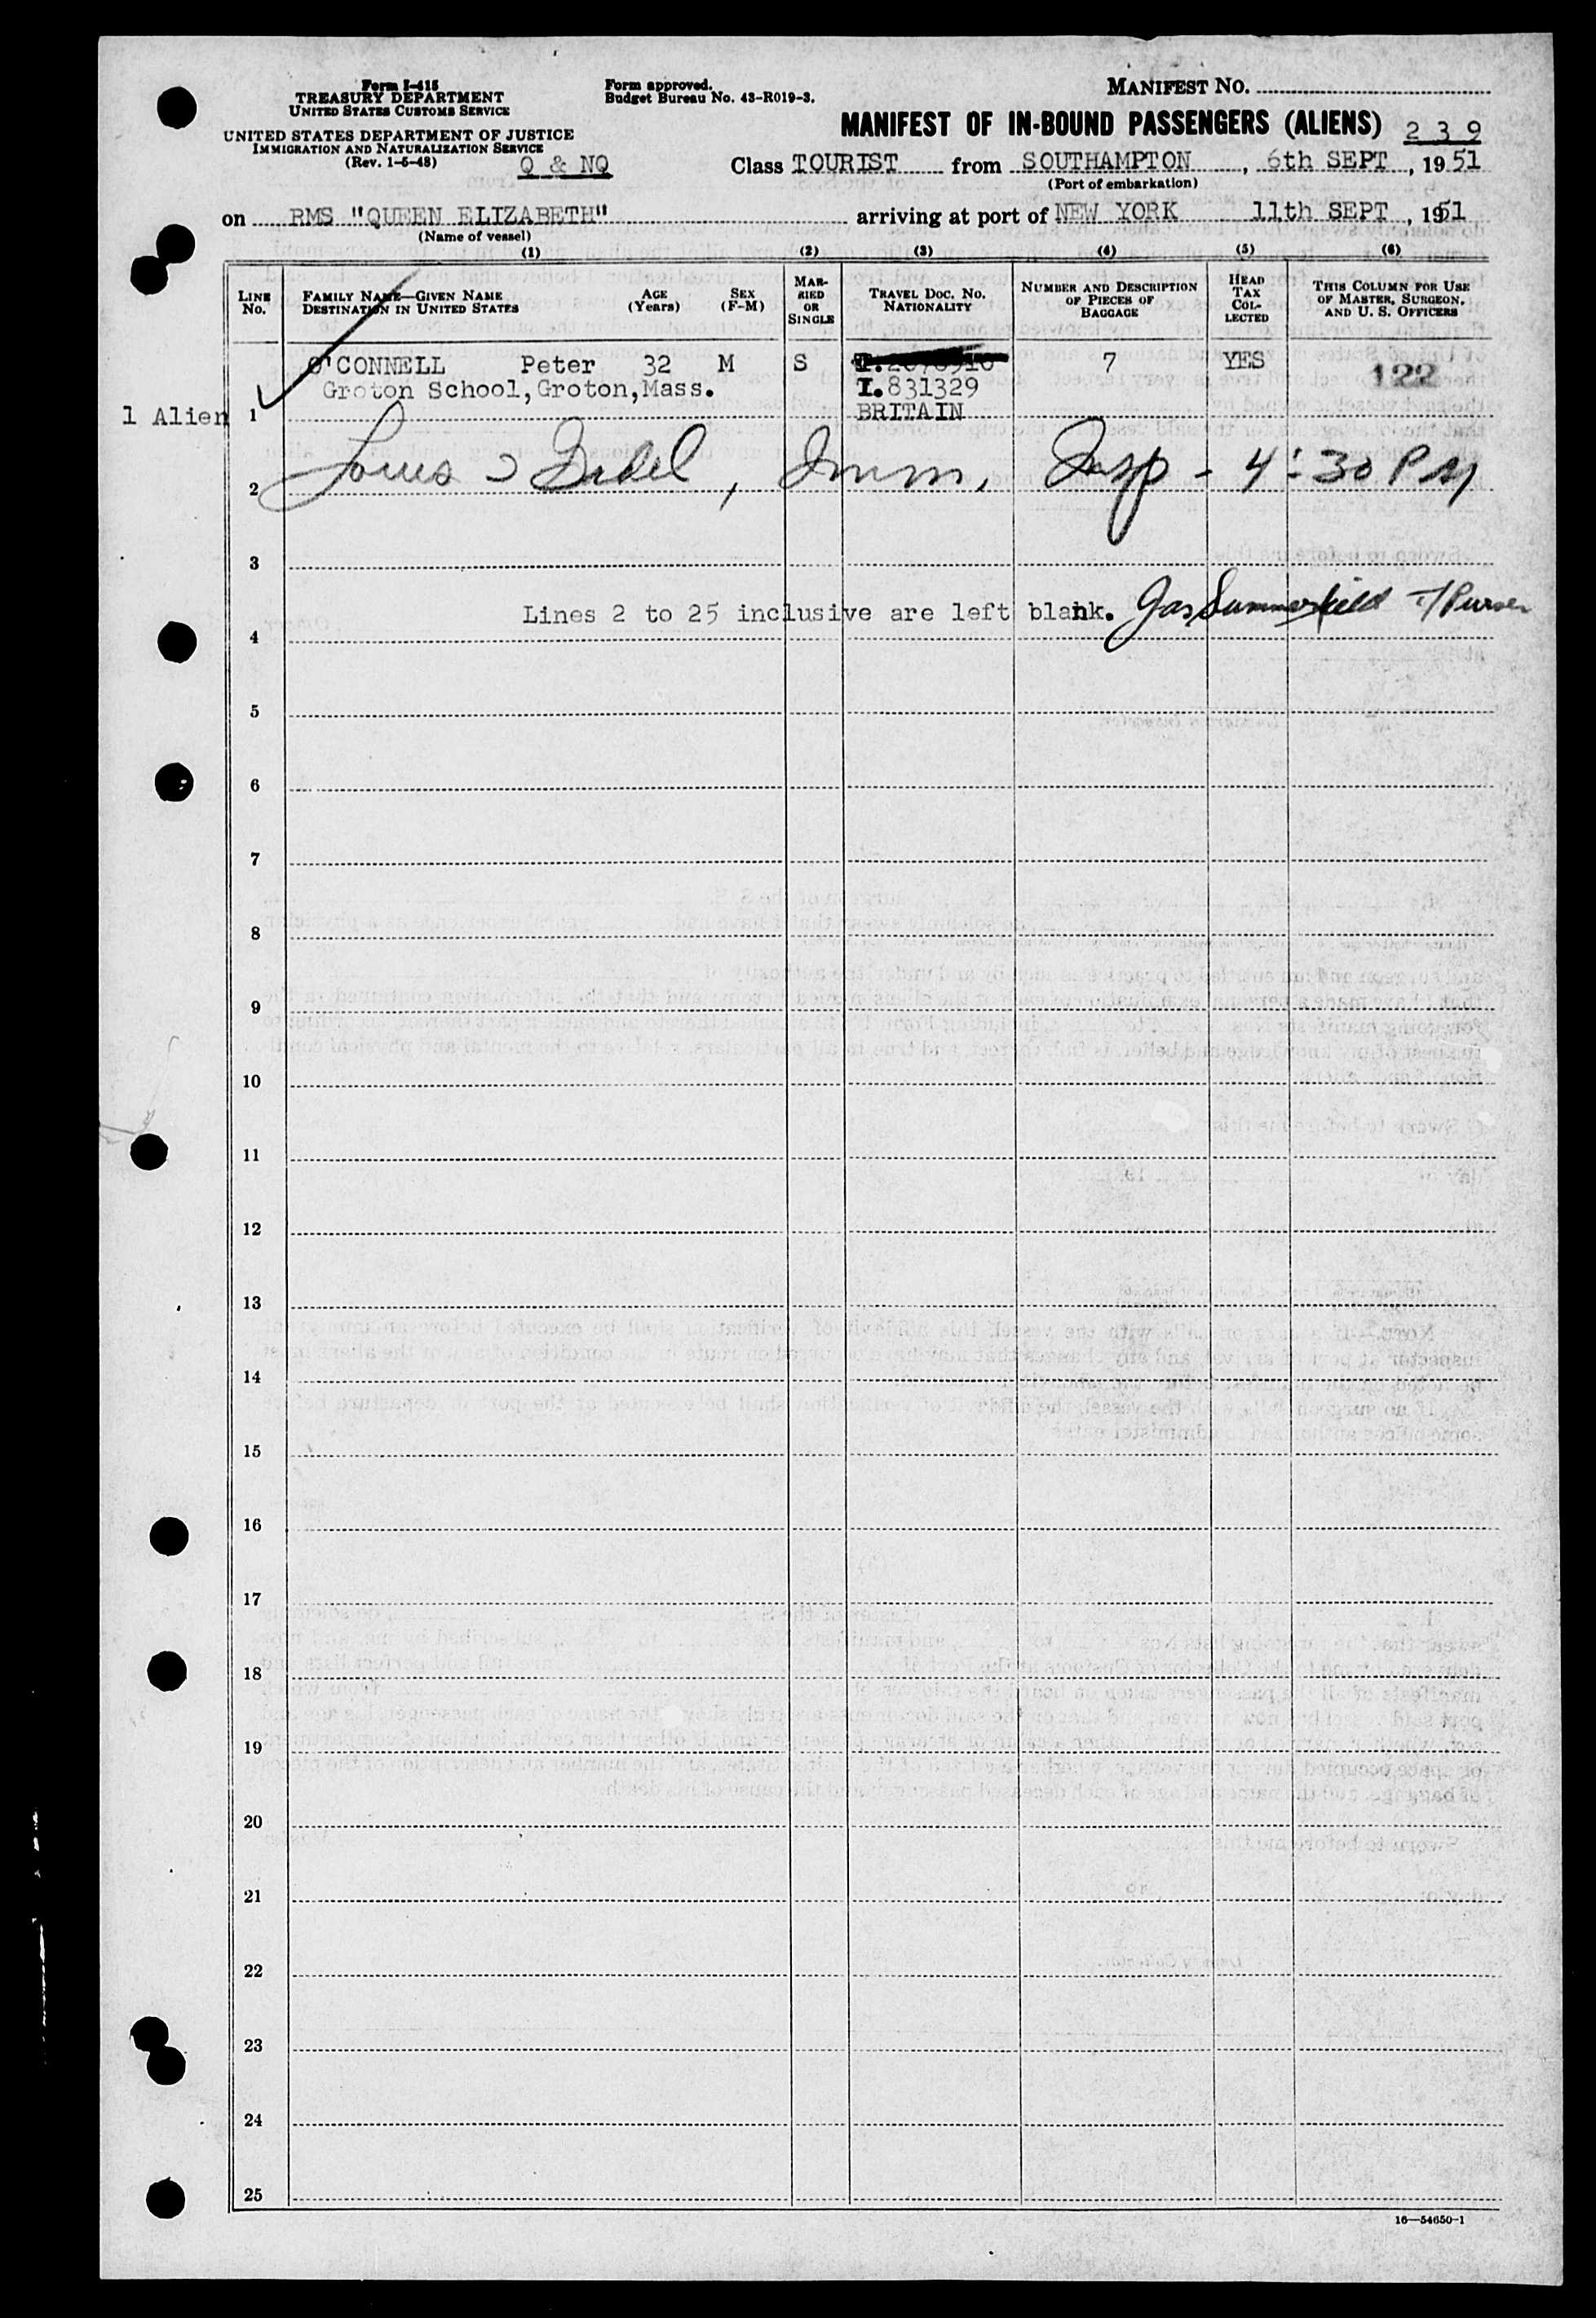 Form I-415
TREASURY DEPARTMENT
UNITED STATES CUSTOMS SERVICE
UNITED STATES DEPARTMENT OF JUSTICE
IMMIGRATION AND NATURALIZATION SERVICE
(Rev. 1-5-48)
Q & NQ
Form approved.
Budget Bureau No. 43-R019-3.
MANIFEST NO.
MANIFEST OF IN-BOUND PASSENGERS (ALIENS) 239
Class TOURIST from SOUTHAMPTON, 6th SEPT, 1951
(Port of embarkation)
on RMS "QUEEN ELIZABETH" arriving at port of NEW YORK 11th SEPT, 1951
(Name of vessel)
(1) (2) (3) (4) (5) (6)
LINE NO.
FAMILY NAME—GIVEN NAME
DESTINATION IN UNITED STATES
AGE (Years)
SEX (F-M)
MARRIED OR SINGLE
TRAVEL DOC. NO.
NATIONALITY
NUMBER AND DESCRIPTION OF PIECES OF BAGGAGE
HEAD TAX COLLECTED
THIS COLUMN FOR USE OF MASTER, SURGEON, AND U. S. OFFICERS
O'CONNELL Peter 32 M S 7 YES 122
Groton School, Groton, Mass. I.831329
1 Alien 1 BRITAIN
2 Imm. Insp - 4:30 PM
3
Lines 2 to 25 inclusive are left blank. Jas Summerfield T/Purser
4
5
6
7
8
9
10
11
12
13
14
15
16
17
18
19
20
21
22
23
24
25
16—54650-1